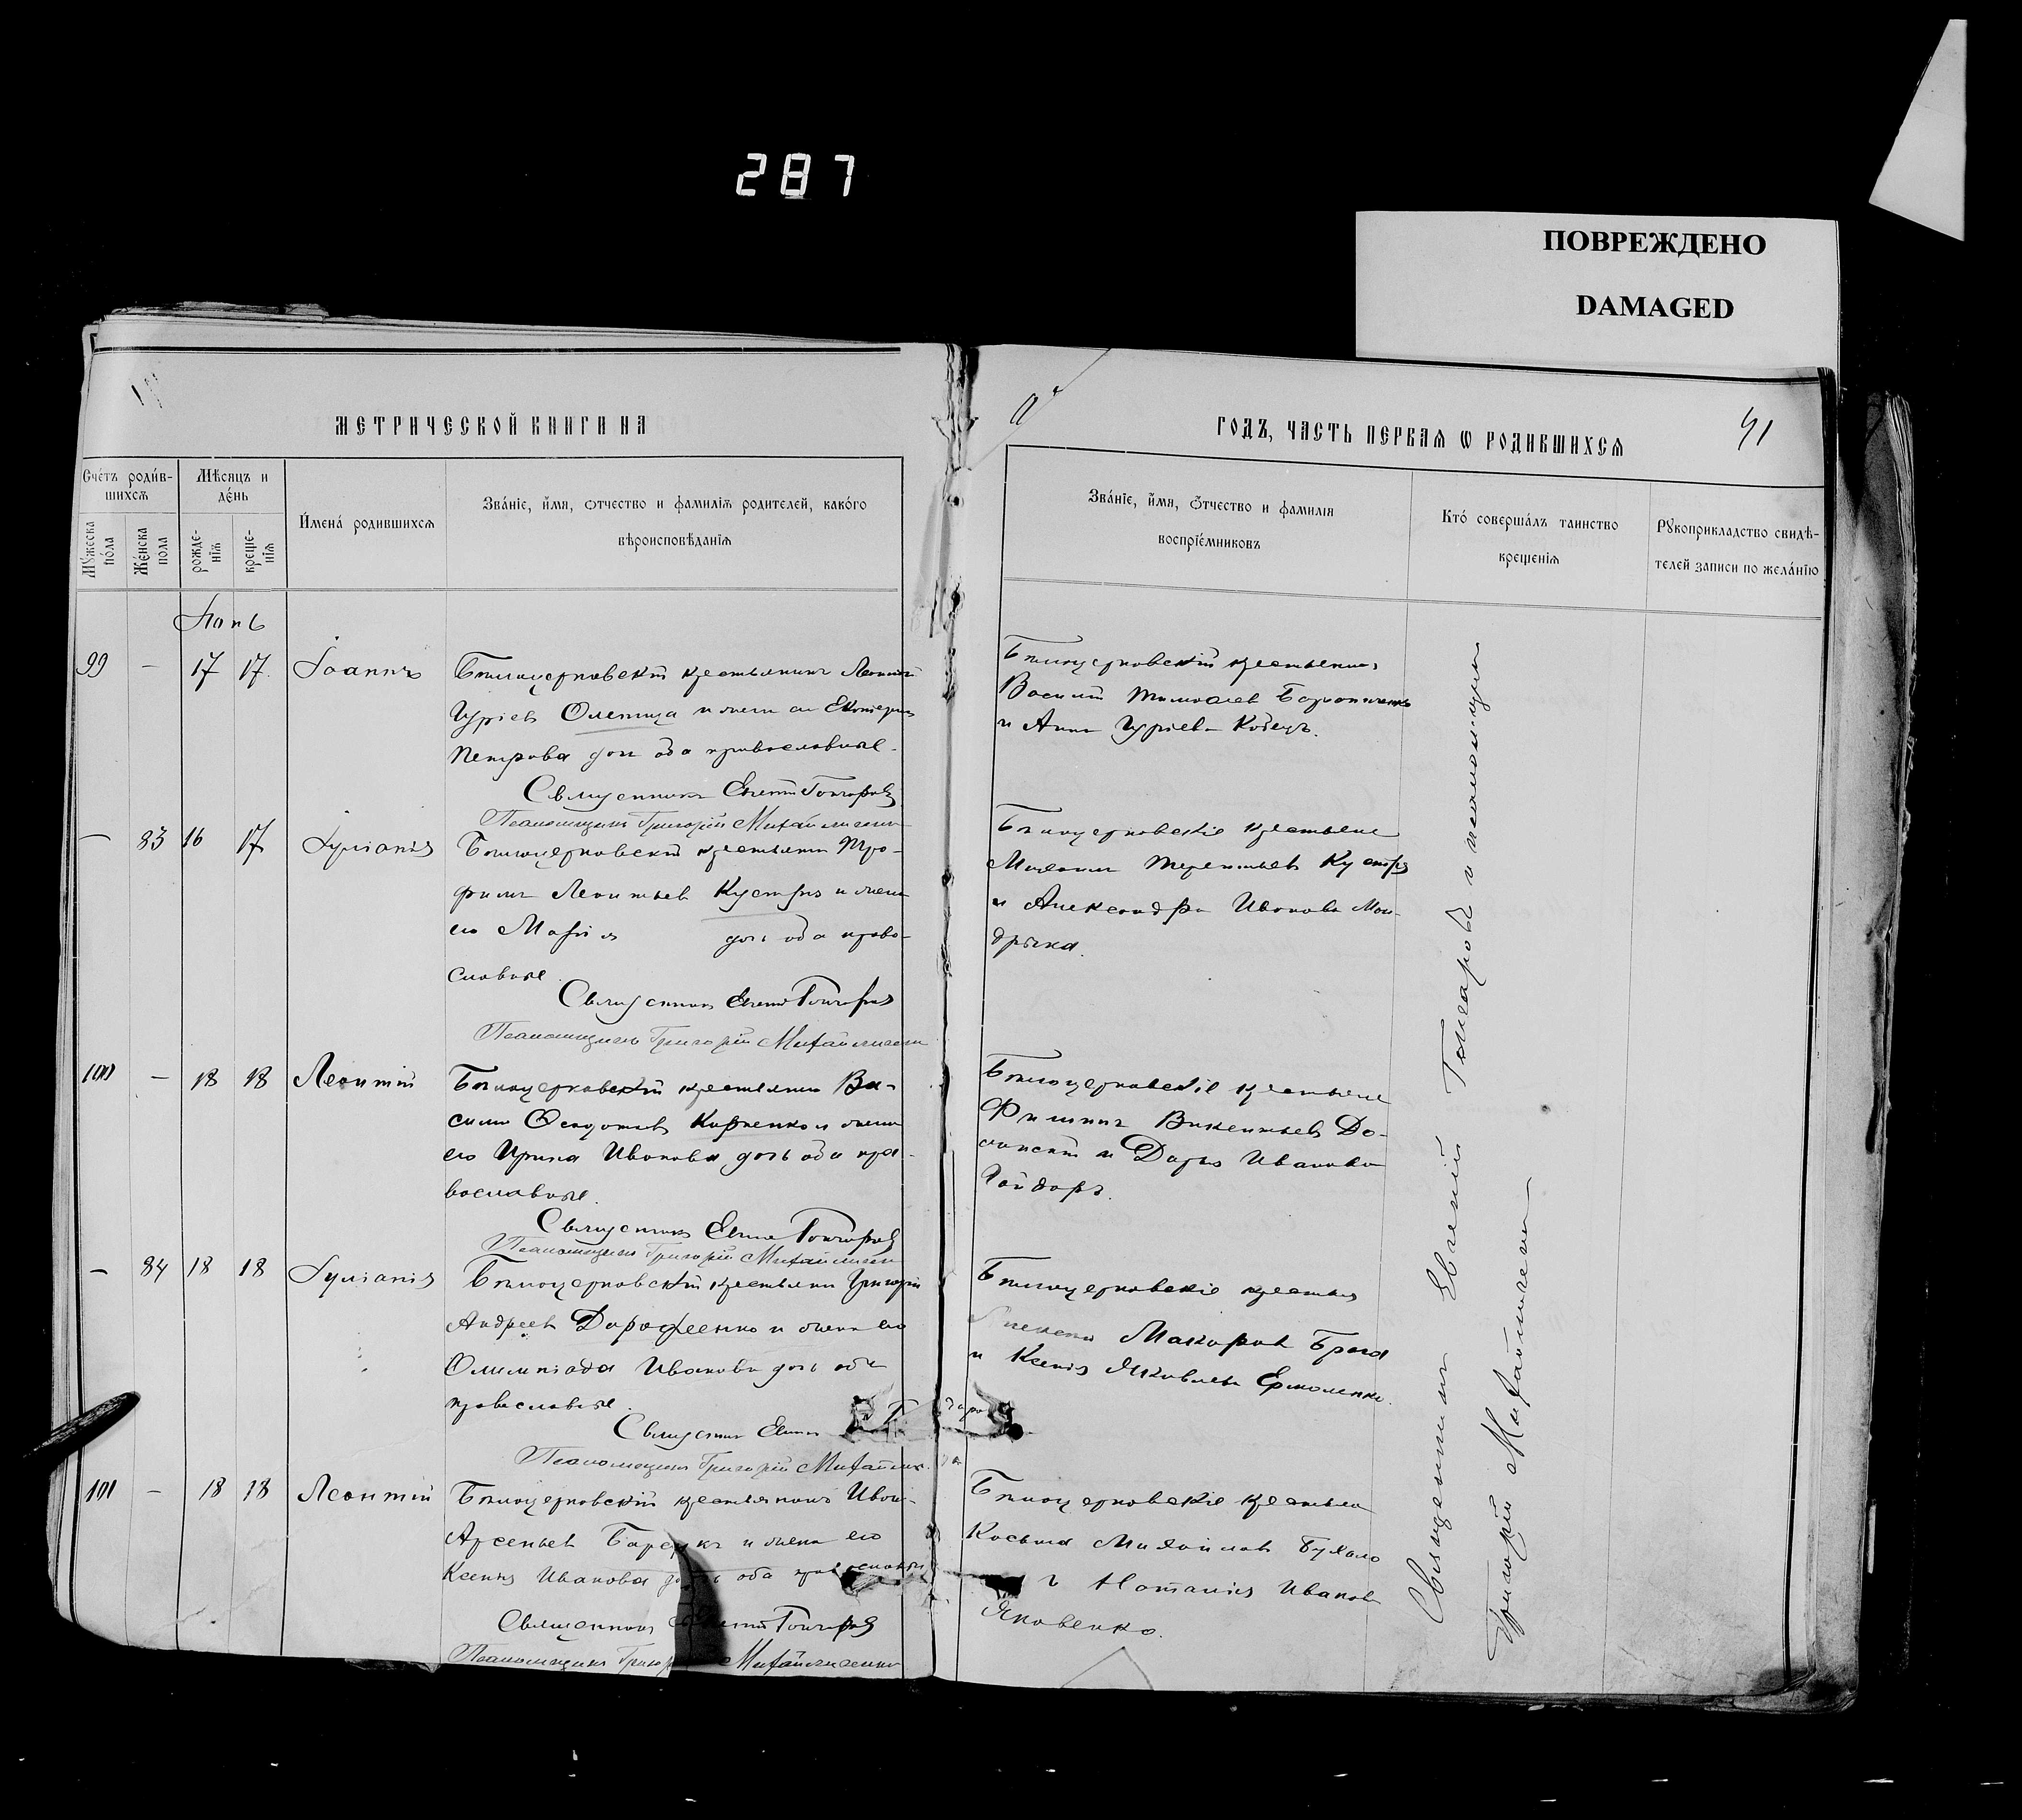 287
ПОВРЕЖДЕНО
DAMAGED
МЕТРИЧЕСКОЙ КНИГИ НА
ГОДЪ, ЧАСТЬ ПЕРВАЯ Ѡ РОДИВШИХСЯ
41
Счётъ родив-
шихся
Мужеска
пола
Женска
пола
Мѣсяцъ и
день
рожде-
нія
креще-
нія
Имена родившихся
Званіе, имя, отчество и фамилія родителей, какого
вѣроисповѣданія
Званіе, имя, отчество и фамилія
воспріемниковъ
Кто совершалъ таинство
крещенія
Рукоприкладство свидѣ-
телей записи по желанію
99 – 17 17 Іоаннъ
Бѣлоцерковскій крестьянинъ Леонтій
Гуріевъ Олепица и жена его Екатерина
Петрова дочь оба православные.
Священникъ Евгеній Гончаровъ
Псаломщикъ Григорій Михайличенко
Бѣлоцерковскій крестьянинъ
Василій Тимофеевъ
и Анна Гуріева Кобецъ.
– 83 16 17 Іуліанія
Бѣлоцерковскій крестьянинъ Тро-
фимъ Леонтьевъ Кустря и жена
его Марія дочь оба право-
славные.
Священникъ Евгеній Гончаровъ
Псаломщикъ Григорій Михайличенко
Бѣлоцерковскіе крестьяне
Михаилъ Терентьевъ Кустря
и Александра Иванова Ман-
дрыка.
100 – 18 18 Леонтій
Бѣлоцерковскій крестьянинъ Ва-
силій Федотовъ Карпенко и жена
его Ирина Иванова дочь оба пра-
вославные.
Священникъ Евгеній Гончаровъ
Псаломщикъ Григорій Михайличенко
Бѣлоцерковскіе крестьяне
Филиппъ Викентьевъ До-
и Дарья Иванова
Гайдаръ.
– 84 18 18 Іуліанія
Бѣлоцерковскій крестьянинъ Григорій
Андреевъ Дорофеенко и жена его
Олимпіада Иванова дочь оба
православные.
Священникъ Евгеній
Псаломщикъ Григорій Михайлич
Бѣлоцерковскіе крестьяне
Макаровъ Брага
и Ксенія Яковлева Ермоленко.
101 – 18 18 Леонтій
Бѣлоцерковскій крестьянинъ Иванъ
Арсеньевъ и жена его
Ксенія Иванова дочь оба православные
Священникъ Евгеній Гончаровъ
Псаломщикъ Григорій Михайличенко
Бѣлоцерковскіе крестьяне
Косьма Михайловъ Бухало
и Наталія Иванова
Яковенко.
Священникъ Евгеній Гончаровъ и псаломщикъ
Григорій Михайличенко